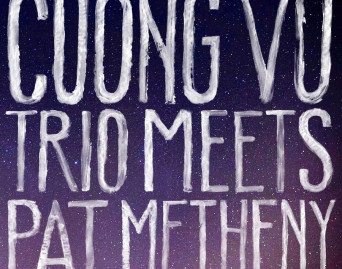 CUONG VU
TRIO MEETS
PAT METHENY